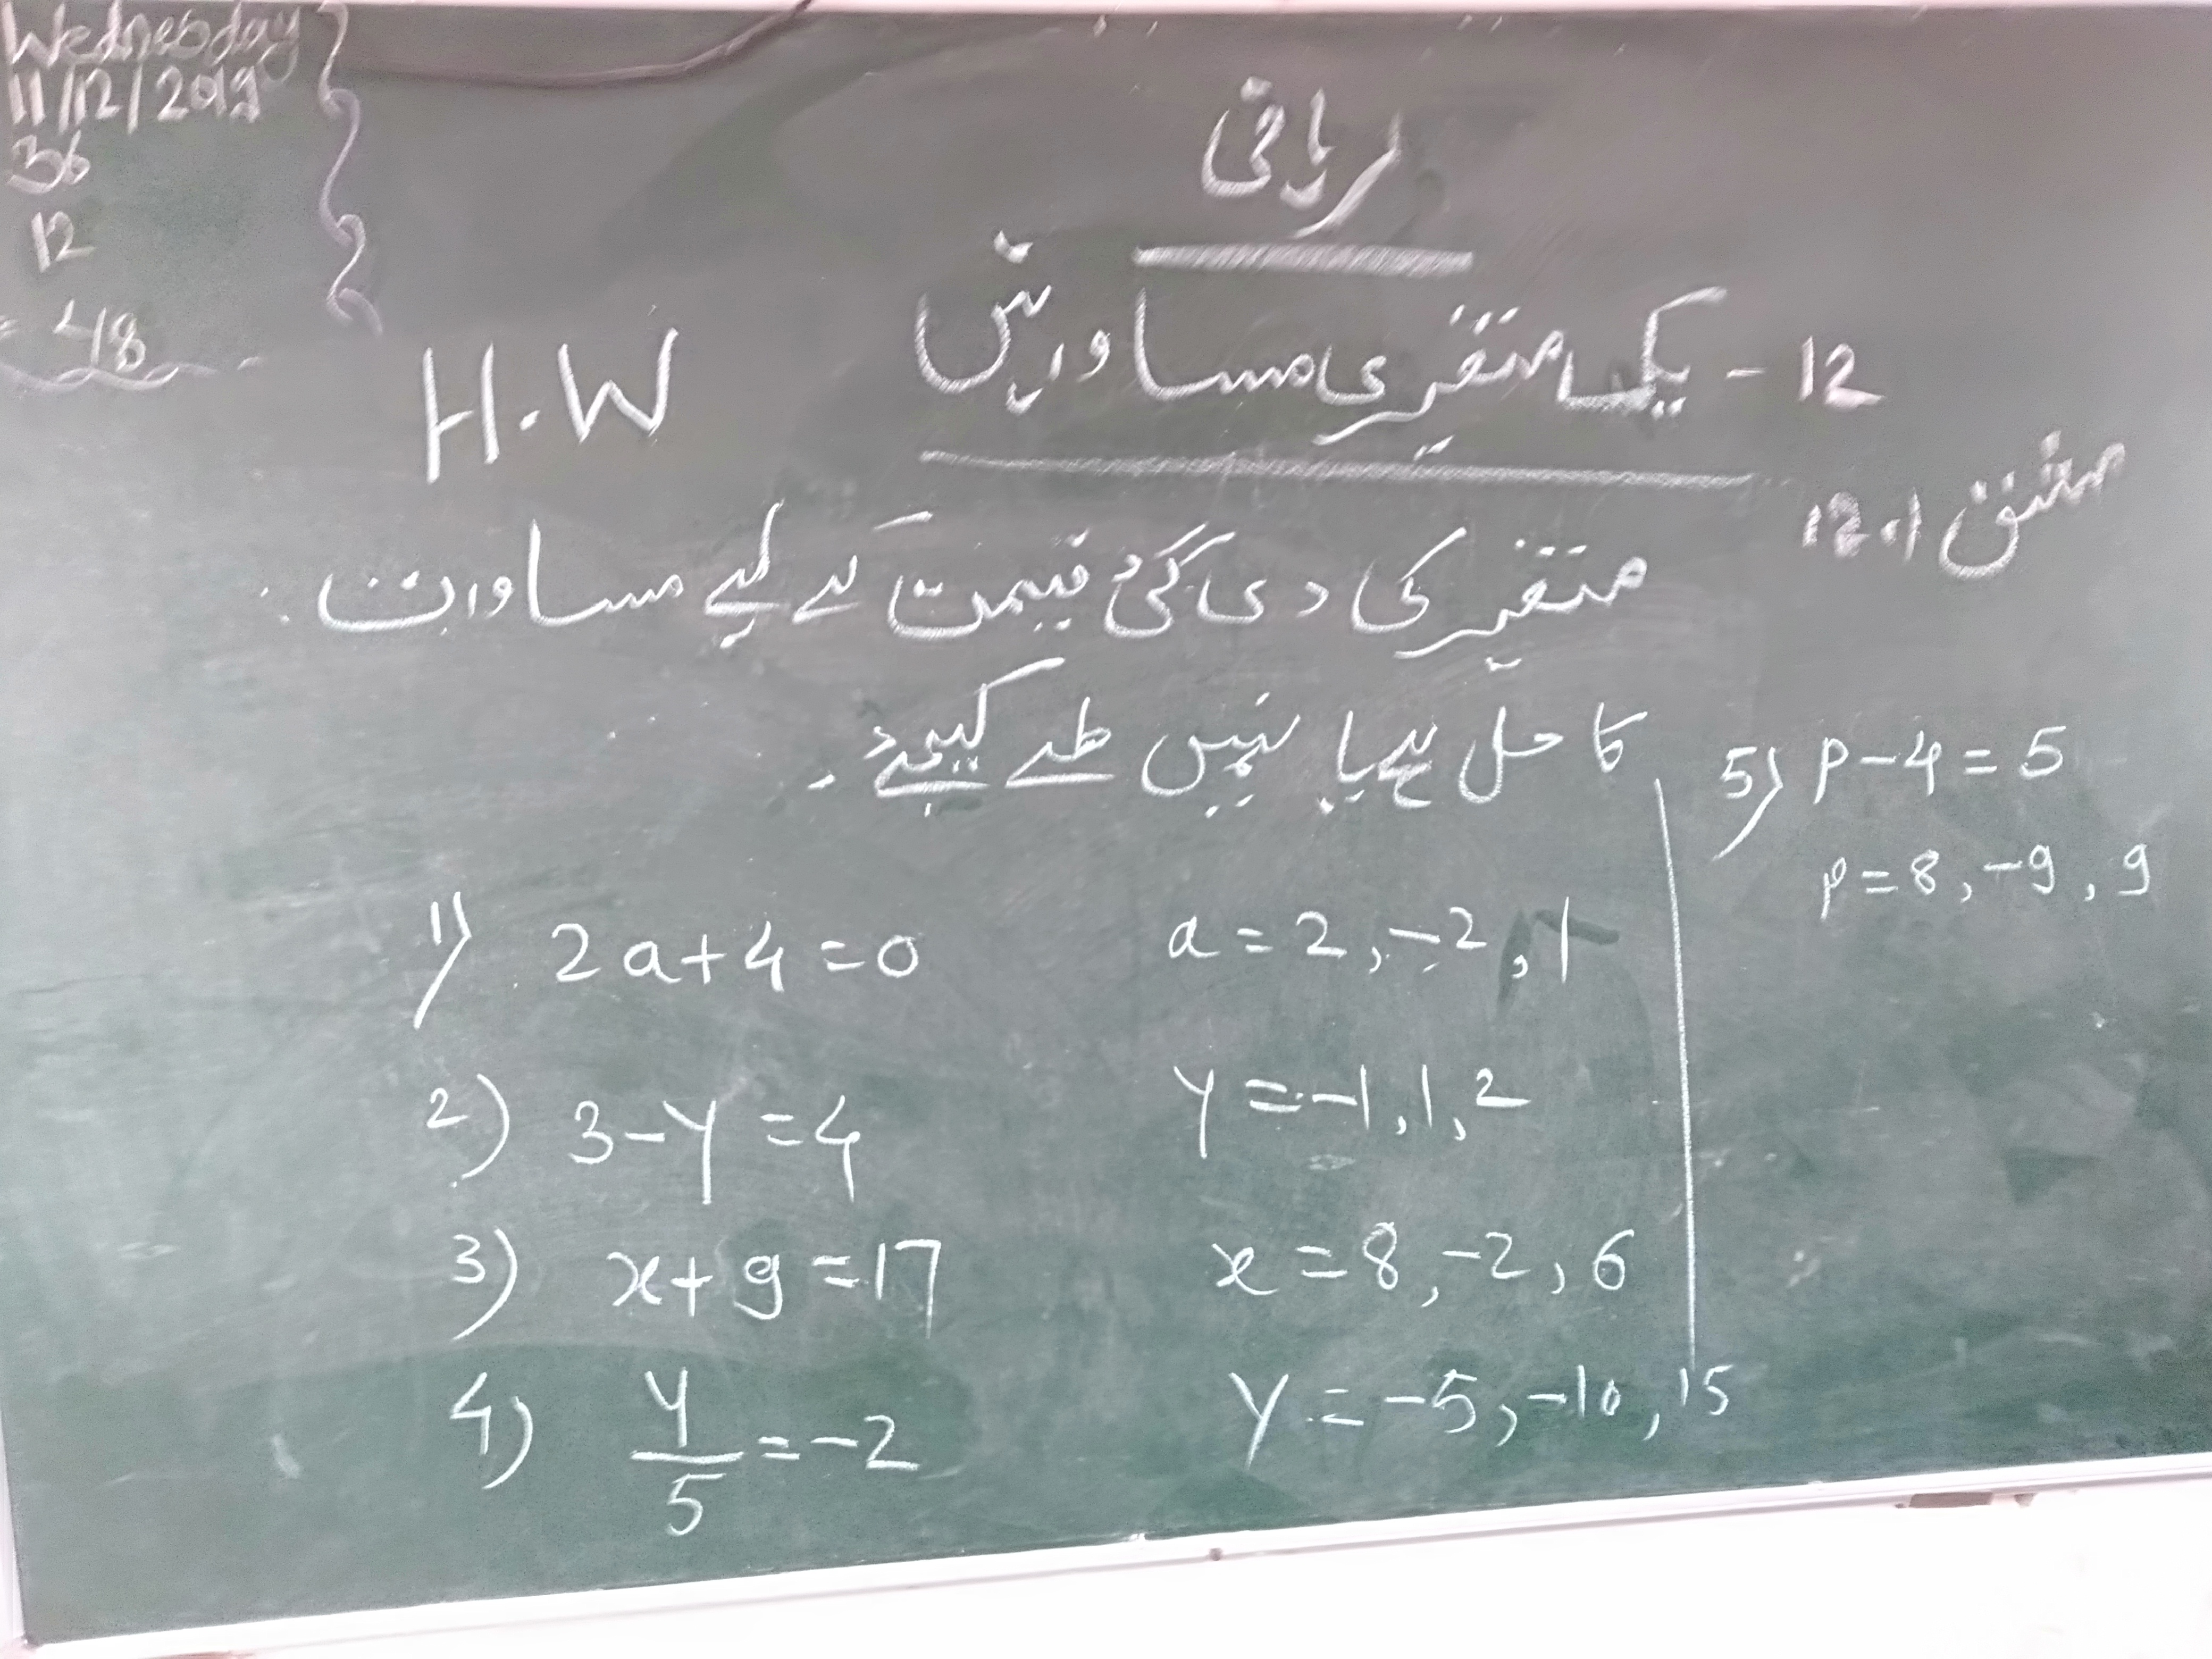 Wednesday
11/12/2019
36
12
= 48
ریاضی
12 - یک متغیری مساوراتیں
H.W
مشق 12.1
متغیر کی دی گئی قیمت کے لیے مساوات
کا حل ہے یا نہیں طے کیجئے۔
1) 2a+4=0 a=2,-2,1
2) 3-y=4 y=-1,1,2
3) x+9=17 x=8,-2,6
4) y/5=-2 y=-5,-10,15
5) p-4=5
p=8,-9,9